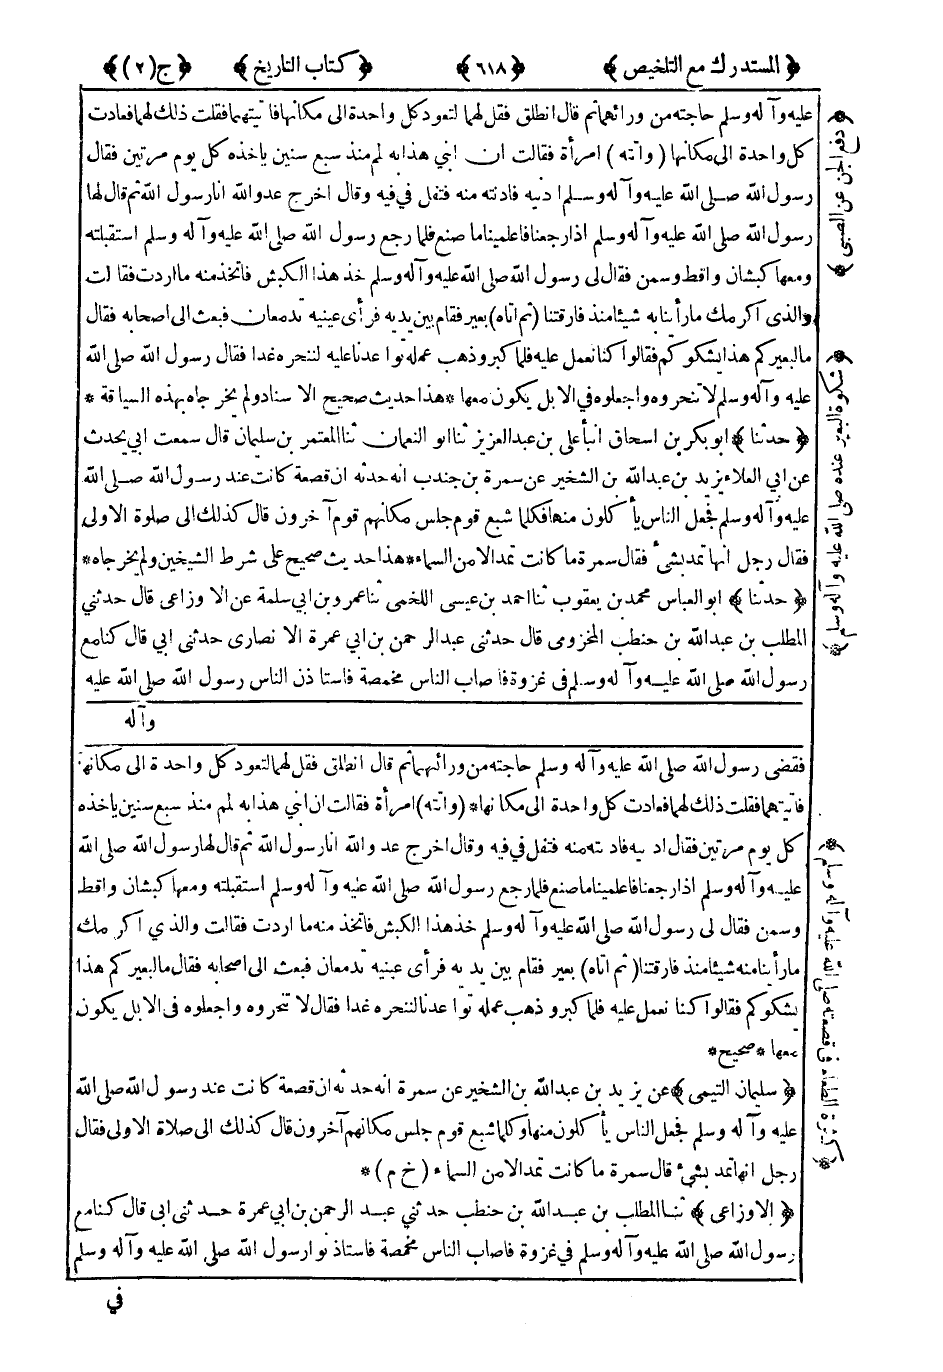 ﴿ المستدرك مع التلخيص ﴾ ﴿ ٦١٨ ﴾ ﴿ كتاب التاريخ ﴾ ﴿ ج (٢) ﴾
عليه وآله وسلم حاجته من ورائهما ثم قال انطلق فقل لهما لتعود كل واحدة الى مكانها فاتيتهما فقلت ذلك لهما فعادت
كل واحدة الى مكانها ( واتته ) امرأة فقالت ان ابني هذا به لم منذ سبع سنين ياخذه كل يوم مرتين فقال
رسول الله صلى الله عليه وآله وسلم ادنيه فادنته منه فتفل في فيه وقال اخرج عدو الله انا رسول الله ثم قال لها
رسول الله صلى الله عليه وآله وسلم اذا رجعنا فاعلمينا ما صنع فلما رجع رسول الله صلى الله عليه وآله وسلم استقبلته
ومعها كبشان واقط وسمن فقال لى رسول الله صلى الله عليه وآله وسلم خذ هذا الكبش فاتخذ منه ما اردت فقالت
والذى اكرمك ما رأينا به شيئا منذ فارقتنا (ثم اتاه) بعير فقام بين يديه فرأى عينيه تدمعان فبعث الى اصحابه فقال
ما لبعيركم هذا يشكوكم فقالوا كنا نعمل عليه فلما كبر وذهب عمله تواعدنا عليه لننحره غدا فقال رسول الله صلى الله
عليه وآله وسلم لا تنحروه واجعلوه في الابل يكون معها * هذا حديث صحيح الاسناد ولم يخرجاه بهذه السياقة *
﴿ حدثنا ﴾ ابو بكر بن اسحاق انبأ على بن عبد العزيز ثنا ابو النعمان ثنا المعتمر بن سليمان قال سمعت ابي يحدث
عن ابي العلاء يزيد بن عبد الله بن الشخير عن سمرة بن جندب انه حدثه ان قصعة كانت عند رسول الله صلى الله
عليه وآله وسلم فجعل الناس يأكلون منها فكلما شبع قوم جلس مكانهم قوم آخرون قال كذلك الى صلوة الاولى
فقال رجل انها تمد بشئ فقال سمرة ما كانت تمد الا من السماء * هذا حديث صحيح على شرط الشيخين ولم يخرجاه *
﴿ حدثنا ﴾ ابو العباس محمد بن يعقوب ثنا احمد بن عيسى اللخمى ثنا عمرو بن ابي سلمة عن الاوزاعى قال حدثني
المطلب بن عبد الله بن حنطب المخزومى قال حدثنى عبد الرحمن بن ابي عمرة الانصارى حدثنى ابي قال كنا مع
رسول الله صلى الله عليه وآله وسلم فى غزوة فاصاب الناس مخمصة فاستاذن الناس رسول الله صلى الله عليه
وآله
فقضى رسول الله صلى الله عليه وآله وسلم حاجته من ورائهما ثم قال انطلق فقل لهما لتعود كل واحدة الى مكانها
فاتيتهما فقلت ذلك لهما فعادت كل واحدة الى مكانها * (واتته) امرأة فقالت ان ابني هذا به لم منذ سبع سنين ياخذه
كل يوم مرتين فقال ادنيه فادنته منه فتفل في فيه وقال اخرج عدو الله انا رسول الله ثم قال لها رسول الله صلى الله
عليه وآله وسلم اذا رجعنا فاعلمينا ما صنع فلما رجع رسول الله صلى الله عليه وآله وسلم استقبلته ومعها كبشان واقط
وسمن فقال لى رسول الله صلى الله عليه وآله وسلم خذ هذا الكبش فاتخذ منه ما اردت فقالت والذي اكرمك
ما رأينا منه شيئا منذ فارقتنا (ثم اتاه) بعير فقام بين يديه فرأى عينيه تدمعان فبعث الى اصحابه فقال ما لبعيركم هذا
يشكوكم فقالوا كنا نعمل عليه فلما كبر وذهب عمله تواعدنا لننحره غدا فقال لا تنحروه واجعلوه فى الابل يكون
معها * صحيح *
﴿ سليمان التيمى ﴾ عن يزيد بن عبد الله بن الشخير عن سمرة انه حدثه ان قصعة كانت عند رسول الله صلى الله
عليه وآله وسلم فجعل الناس يأكلون منها وكلما شبع قوم جلس مكانهم آخرون قال كذلك الى صلاة الاولى فقال
رجل انها تمد بشئ قال سمرة ما كانت تمد الا من السماء ( خ م ) *
﴿ الاوزاعى ﴾ ثنا المطلب بن عبد الله بن حنطب حدثني عبد الرحمن بن ابي عمرة حدثنى ابى قال كنا مع
رسول الله صلى الله عليه وآله وسلم في غزوة فاصاب الناس مخمصة فاستاذنوا رسول الله صلى الله عليه وآله وسلم
في
﴿ دفع الجن عن الصبى ﴾
﴿ شكوة البعير عنده صلى الله عليه وآله وسلم ﴾
﴿ كثرة الطعام فى قصعته صلى الله عليه وآله وسلم ﴾